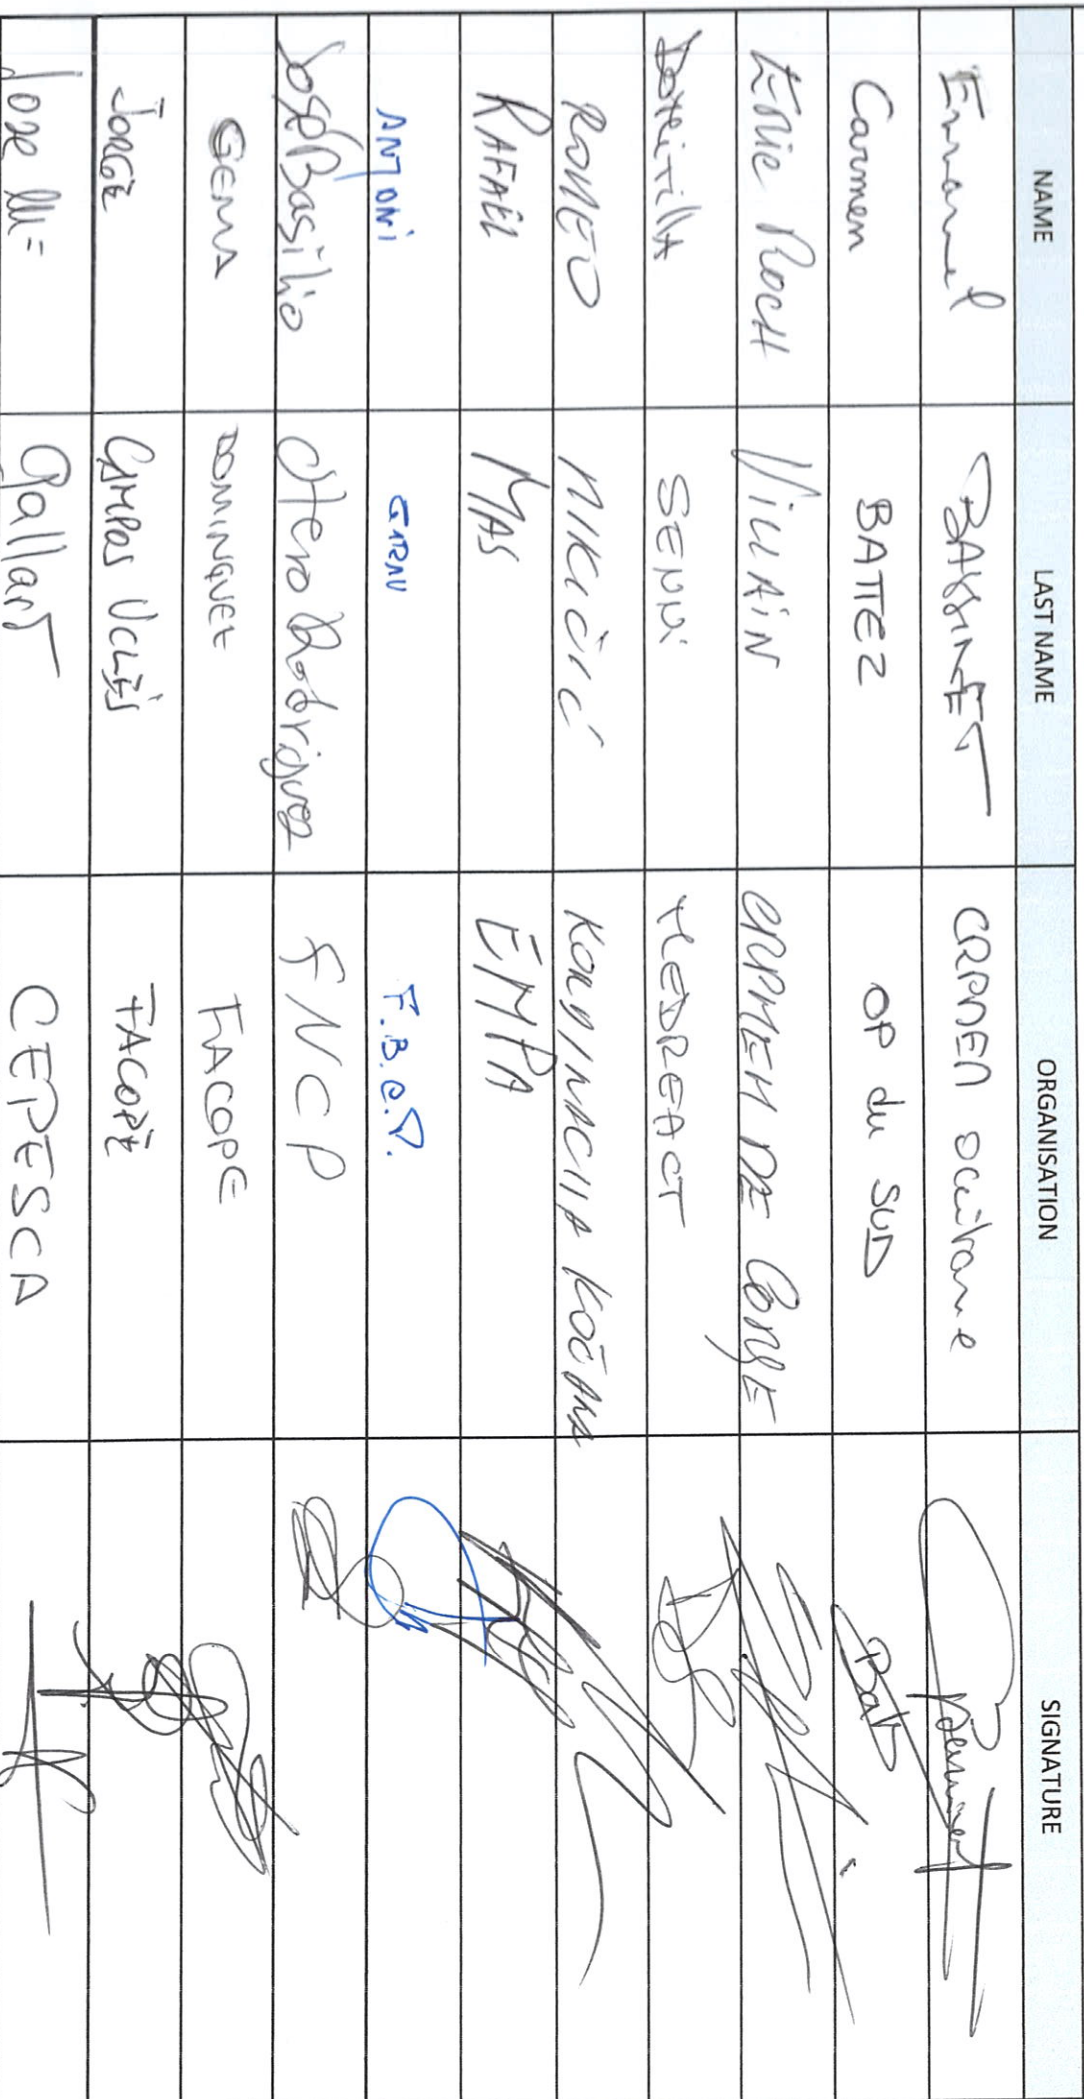 NAME LAST NAME ORGANISATION SIGNATURE
Emmanuel BASSINET CRPMEM occitanie
Carmen BATTEZ OP du SUD
Erric ROCH VILLAIN CRPMEM DE CORSE
Domitilla SENNI MEDREACT
ROMEO MIKLIČIĆ KOORDINACIJA KOČARA
RAFAEL MAS EMPA
ANTONI GARAU F.B.C.P.
José Basilio Otero Rodríguez FNCP
GEMA DOMINGUEZ FACOPE
JORGE CAMPOS UCLÉS FACOPE
Jose M= Gallart CEPESCA